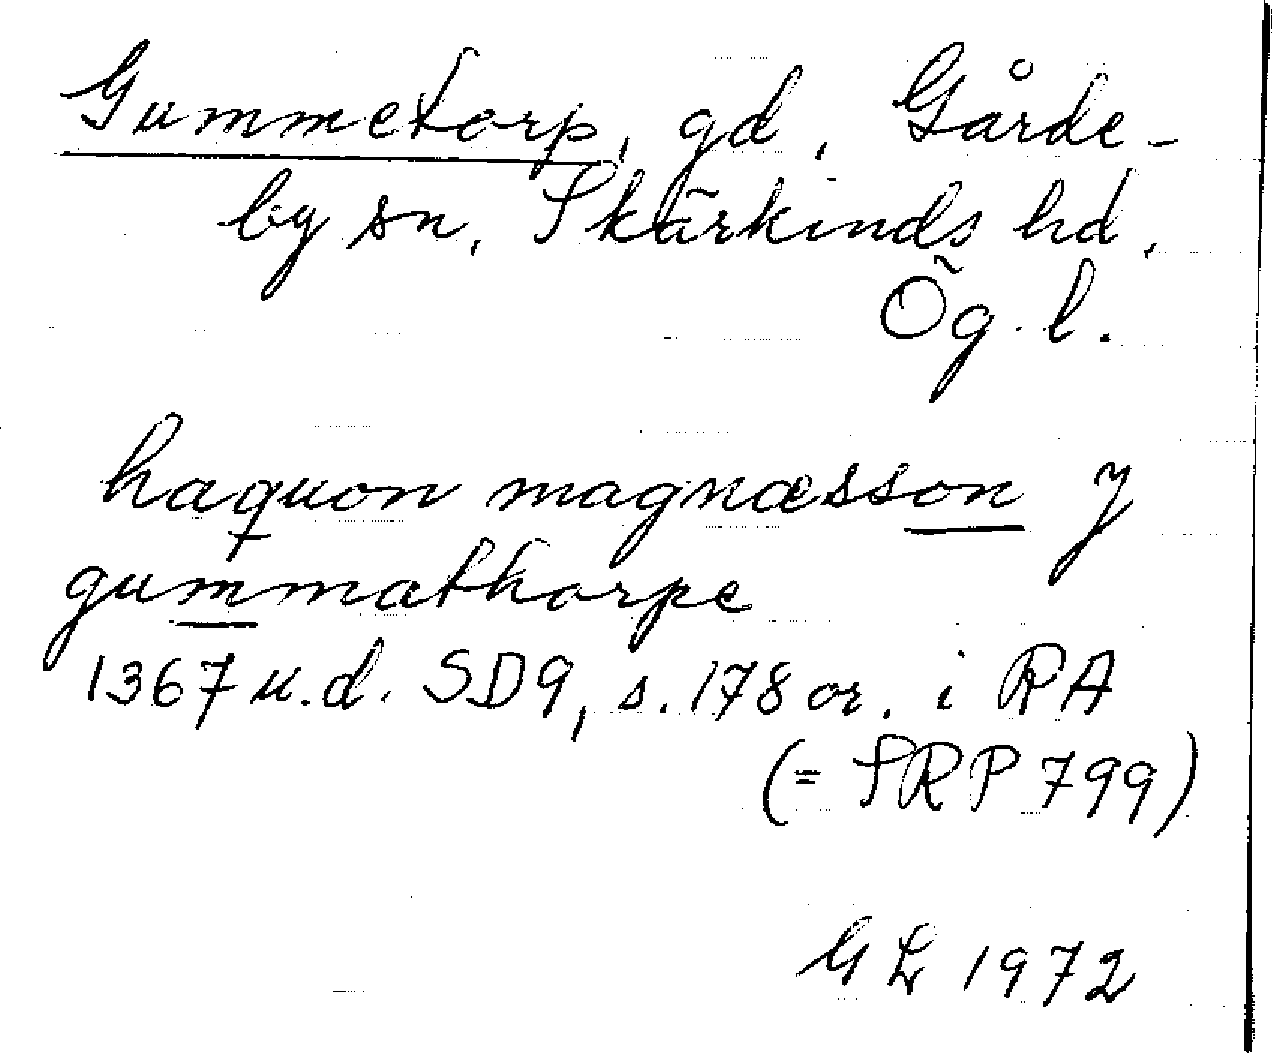 Gummetorp, gd, Gårde-
by sn, Skärkinds hd,
Ög. l.
haquon magnæsson J
gummathorpe
1367 u.d. SD9, s.178 or. i RA
(= SRP 799)
GL 1972